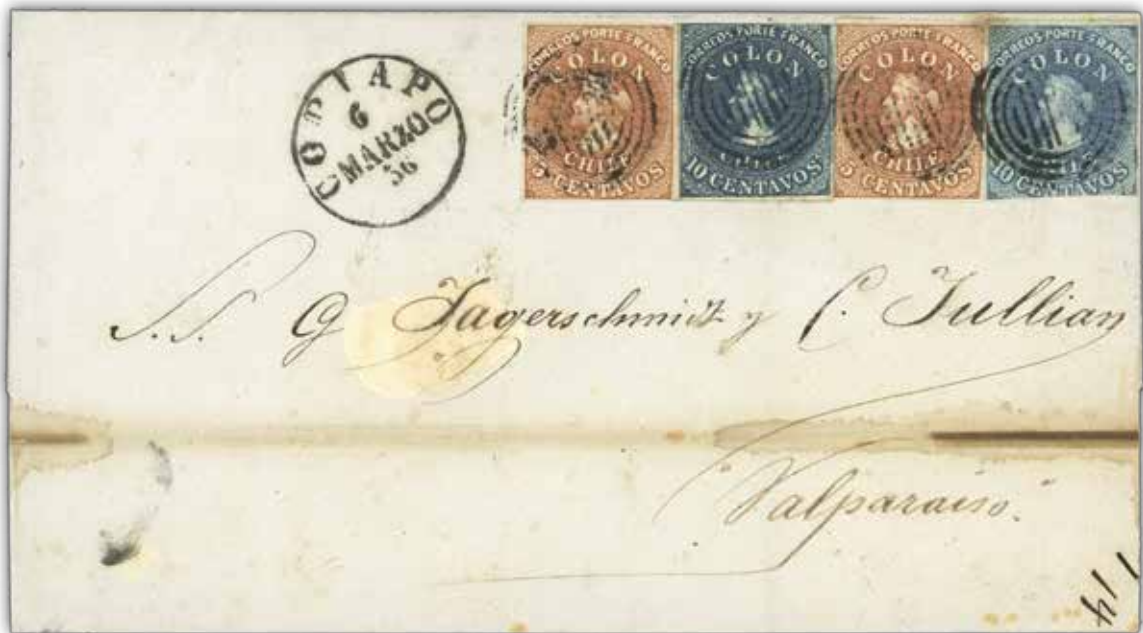 COPIAPO
6
MARZO
56
CORREOS PORTE FRANCO
COLON
CHILE
5 CENTAVOS
CORREOS PORTE FRANCO
COLON
CHILE
10 CENTAVOS
CORREOS PORTE FRANCO
COLON
CHILE
5 CENTAVOS
CORREOS PORTE FRANCO
COLON
CHILE
10 CENTAVOS
S.S. G Jagerschmidt y C. Jullian
Valparaiso.